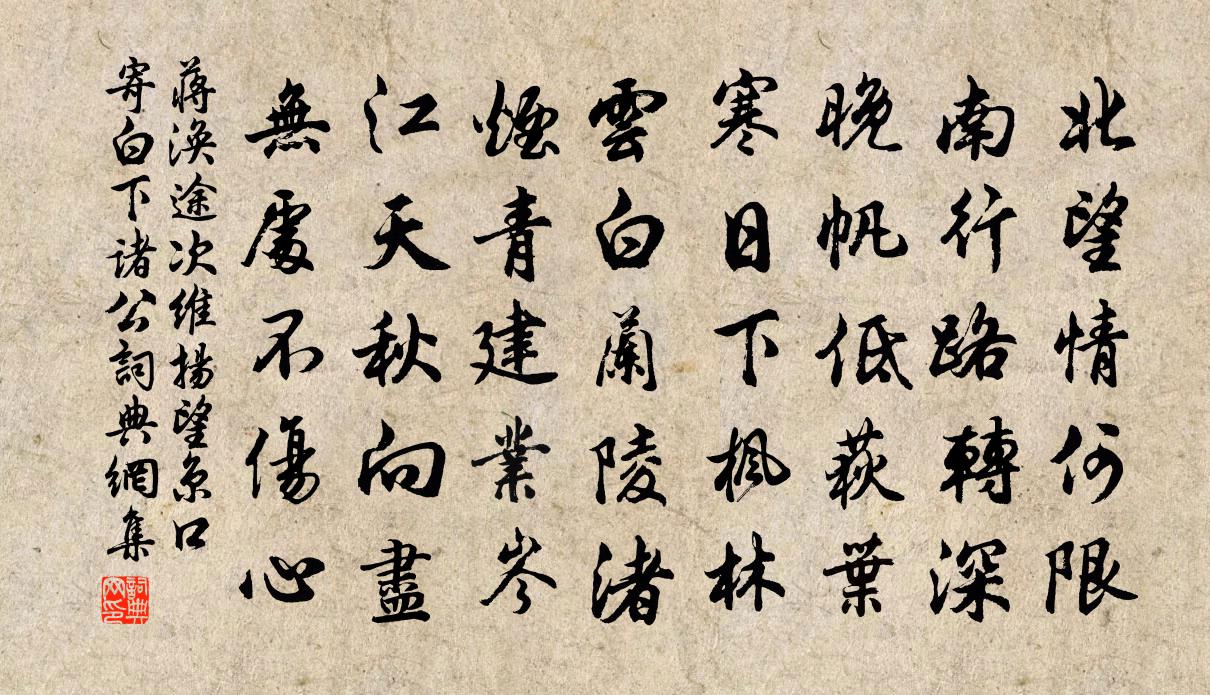 北望情何限
南行路轉深
晚帆低荻葉
寒日下楓林
雲白蘭陵渚
煙青建業岑
江天秋向盡
無處不傷心
蔣渙途次維揚望京口
寄白下諸公詞典網集
詞典
网印